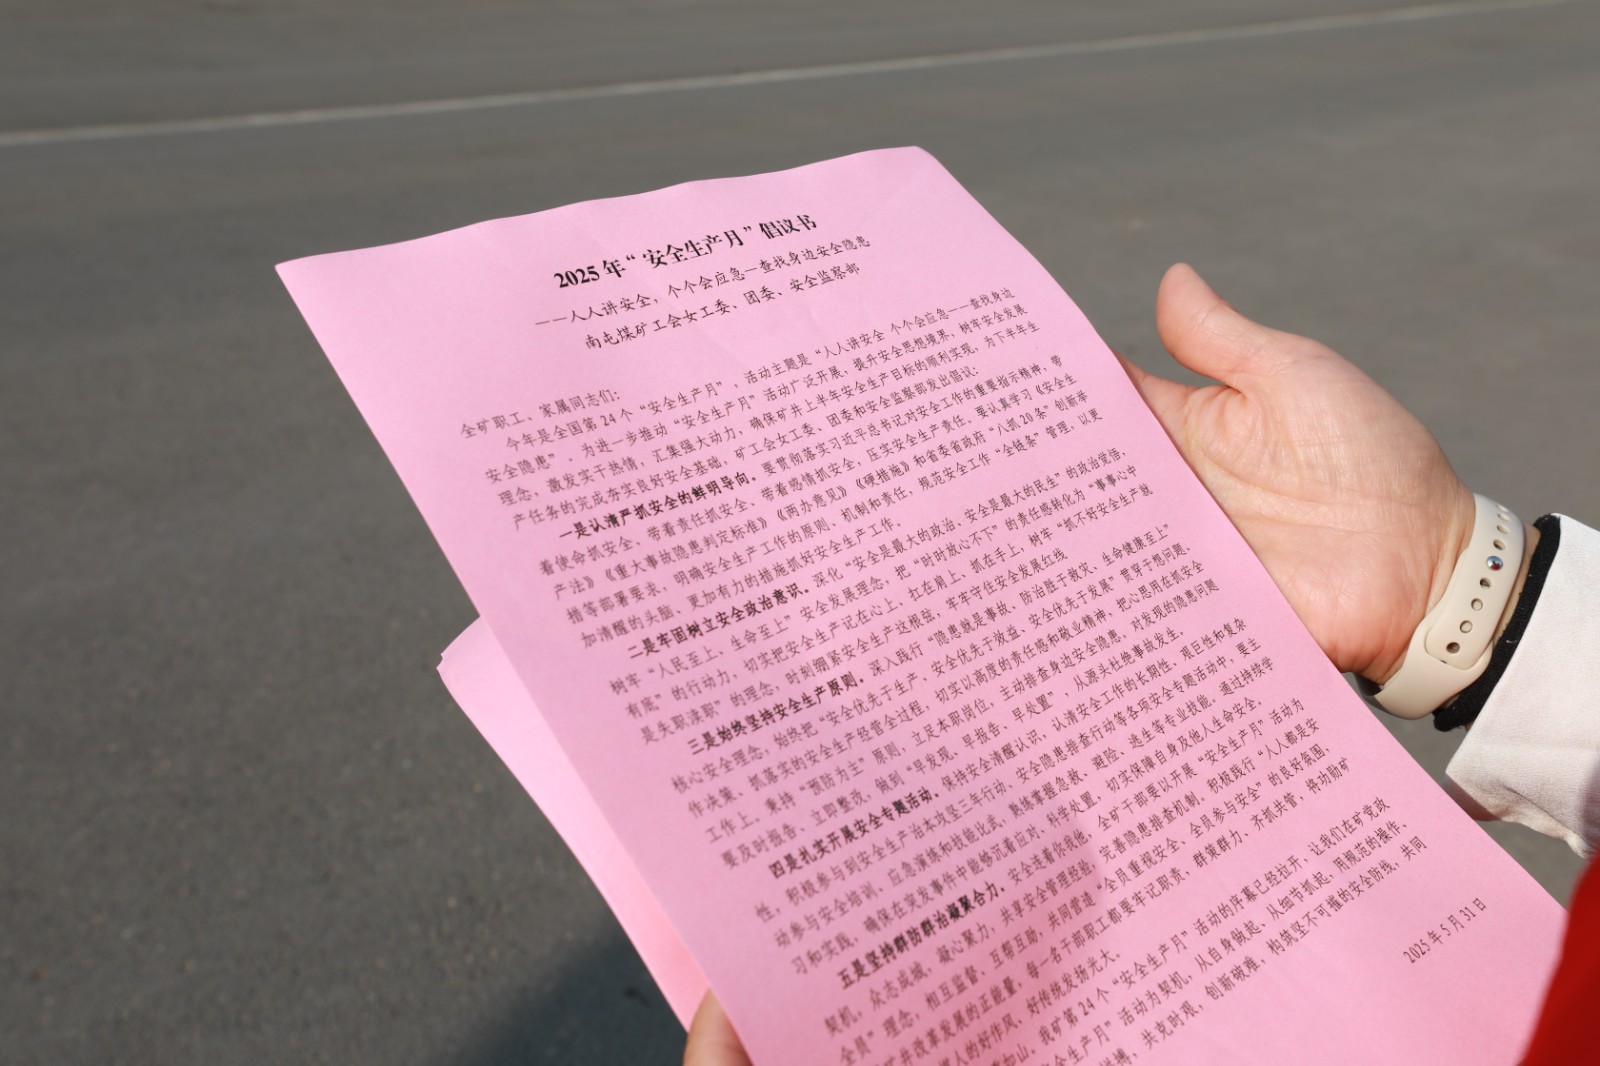 2025年“安全生产月”倡议书
——人人讲安全，个个会应急—查找身边安全隐患
南屯煤矿工会女工委、团委、安全监察部
全矿职工、家属同志们：
今年是全国第24个“安全生产月”，活动主题是“人人讲安全 个个会应急——查找身边
安全隐患”。为进一步推动“安全生产月”活动广泛开展，提升安全思想境界，树牢安全发展
理念，激发实干热情，汇集强大动力，确保矿井上半年安全生产目标的顺利实现，为下半年生
产任务的完成夯实良好安全基础，矿工会女工委、团委和安全监察部发出倡议：
一是认清严抓安全的鲜明导向。要贯彻落实习近平总书记对安全工作的重要指示精神，带
着使命抓安全、带着责任抓安全、带着感情抓安全，压实安全生产责任，要认真学习《安全生
产法》《重大事故隐患判定标准》《两办意见》《硬措施》和省委省政府“八抓20条”创新举
措等部署要求，明确安全生产工作的原则、机制和责任，规范安全工作“全链条”管理，以更
加清醒的头脑、更加有力的措施抓好安全生产工作。
二是牢固树立安全政治意识。深化“安全是最大的政治、安全是最大的民生”的政治觉悟，
树牢“人民至上、生命至上”安全发展理念，把“时时放心不下”的责任感转化为“事事心中
有底”的行动力，切实把安全生产记在心上、扛在肩上、抓在手上，树牢“抓不好安全生产就
是失职渎职”的理念，时刻绷紧安全生产这根弦，牢牢守住安全发展红线
三是始终坚持安全生产原则。深入践行“隐患就是事故、防治胜于救灾、生命健康至上”
核心安全理念，始终把“安全优先于生产、安全优先于效益、安全优先于发展”贯穿于想问题、
作决策、抓落实的安全生产经营全过程，切实以高度的责任感和敬业精神，把心思用在抓安全
工作上。秉持“预防为主”原则，立足本职岗位，主动排查身边安全隐患，对发现的隐患问题
要及时报告、立即整改，做到“早发现、早报告、早处置”，从源头杜绝事故发生。
四是扎实开展安全专题活动。保持安全清醒认识，认清安全工作的长期性、艰巨性和复杂
性，积极参与到安全生产治本攻坚三年行动、安全隐患排查行动等各项安全专题活动中，要主
动参与安全培训、应急演练和技能比武，熟练掌握急救、避险、逃生等专业技能。通过持续学
习和实践，确保在突发事件中能够沉着应对、科学处置，切实保障自身及他人生命安全。
五是坚持群防群治凝聚合力。安全连着你我他，全矿干部要以开展“安全生产月”活动为
契机，众志成城，凝心聚力，共享安全管理经验，完善隐患排查机制，积极践行“人人都是安
全员”理念，相互监督、互帮互助，共同营造“全员重视安全、全员参与安全”的良好氛围，
矿井改革发展的正能量，每一名干部职工都要牢记职责，群策群力、齐抓共管，将功勋矿
人的好作风、好传统发扬光大。
如山。我矿第24个“安全生产月”活动的序幕已经拉开，让我们在矿党政
全生产月”活动为契机，从自身做起、从细节抓起，用规范的操作、
搏，共克时艰，创新破难，构筑坚不可摧的安全防线，共同
2025年5月31日